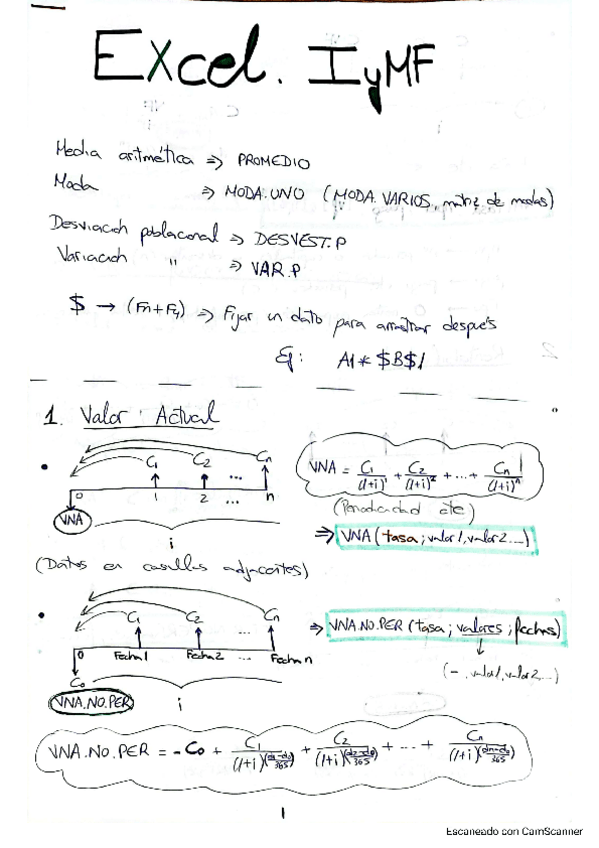 Excel. IyMF
Media aritmética => PROMEDIO
Moda => MODA.UNO (MODA.VARIOS, matriz de modas)
Desviación poblacional => DESVEST.P
Variación " => VAR.P
$ → (Fn+F4) => Fijar un dato para arrastrar después
Ej: A1*$B$1
1. Valor Actual
C1 C2 ... Cn
0 1 2 ... n
VNA
i
VNA = C1/(1+i)^1 + C2/(1+i)^2 + ... + Cn/(1+i)^n
(Periodicidad cte)
=> VNA(tasa; valor1, valor2...)
(Datos en casillas adjacentes)
C1 C2 Cn
0 Fecha1 Fecha2 ... Fecha n
C0
VNA.NO.PER
i
=> VNA.NO.PER (tasa; valores; fechas)
(-, valor1, valor2,...)
VNA.NO.PER = -C0 + C1/(1+i)^((d1-d0)/365) + C2/(1+i)^((d2-d0)/365) + ... + Cn/(1+i)^((dn-d0)/365)
1
Escaneado con CamScanner